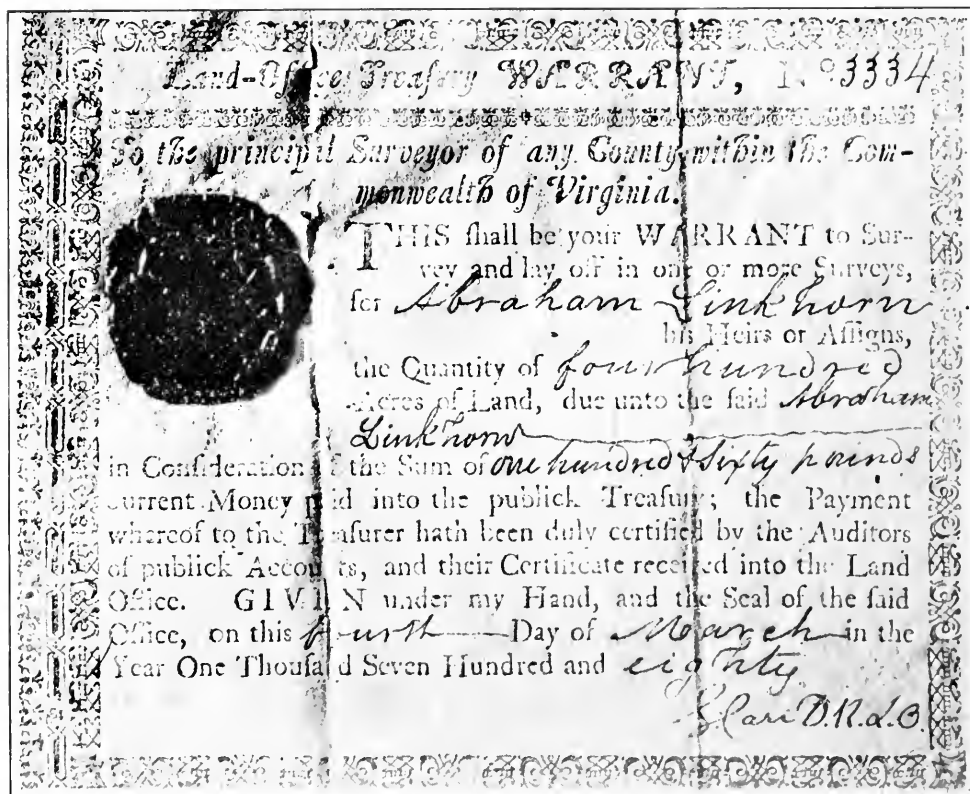 Land-Office Treasury WARRANT, No 3334
To the principal Surveyor of any County within the Com-
monwealth of Virginia.
THIS shall be your WARRANT to Sur-
vey and lay off in one or more Surveys,
for Abraham Linkhorn
his Heirs or Assigns,
the Quantity of four hundred
Acres of Land, due unto the said Abraham
Linkhorn
in Consideration of the Sum of one hundred & Sixty pounds
current Money paid into the publick Treasury; the Payment
whereof to the Treasurer hath been duly certified by the Auditors
of publick Accounts, and their Certificate received into the Land
Office. GIVEN under my Hand, and the Seal of the said
Office, on this fourth Day of March in the
Year One Thousand Seven Hundred and eighty
Carr D.R.L.O.